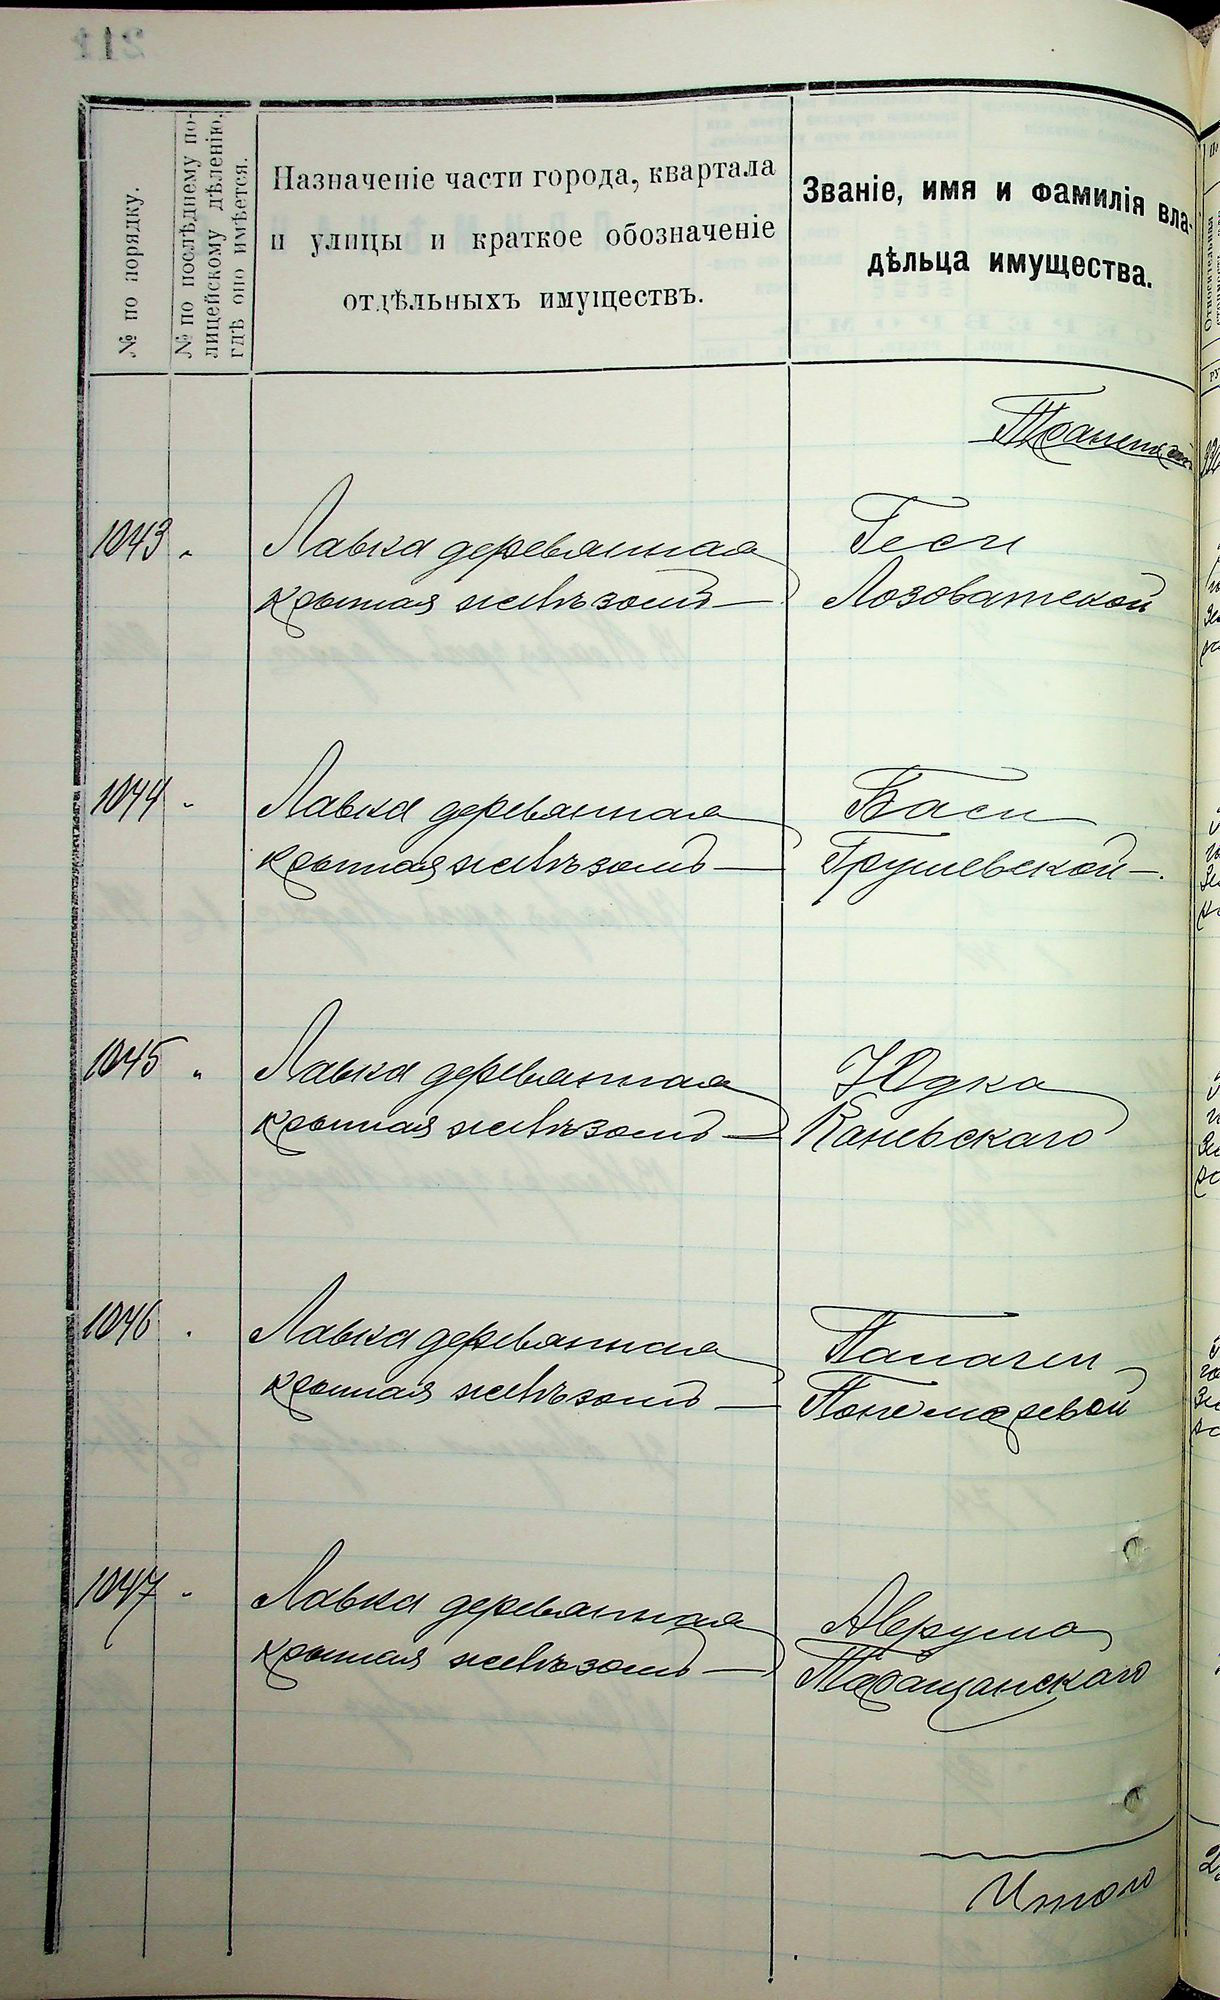 211
№ по порядку.
№ по послѣднему по-
лицейскому дѣленію,
гдѣ оно имѣется.
Назначеніе части города, квартала
и улицы и краткое обозначеніе
отдѣльныхъ имуществъ.
Званіе, имя и фамилія вла-
дѣльца имущества.
Транспортъ
1043 „ Лавка деревянная Геси
крытая желѣзомъ — Лозоватской
1044 „ Лавка деревянная Баси
крытая желѣзомъ — Грушевской —.
1045 „ Лавка деревянная Юдка
крытая желѣзомъ — Каневскаго
1046 „ Лавка деревянная
крытая желѣзомъ — Пономаревой
1047 „ Лавка деревянная Аврума
крытая желѣзомъ — Таращанскаго
Итого